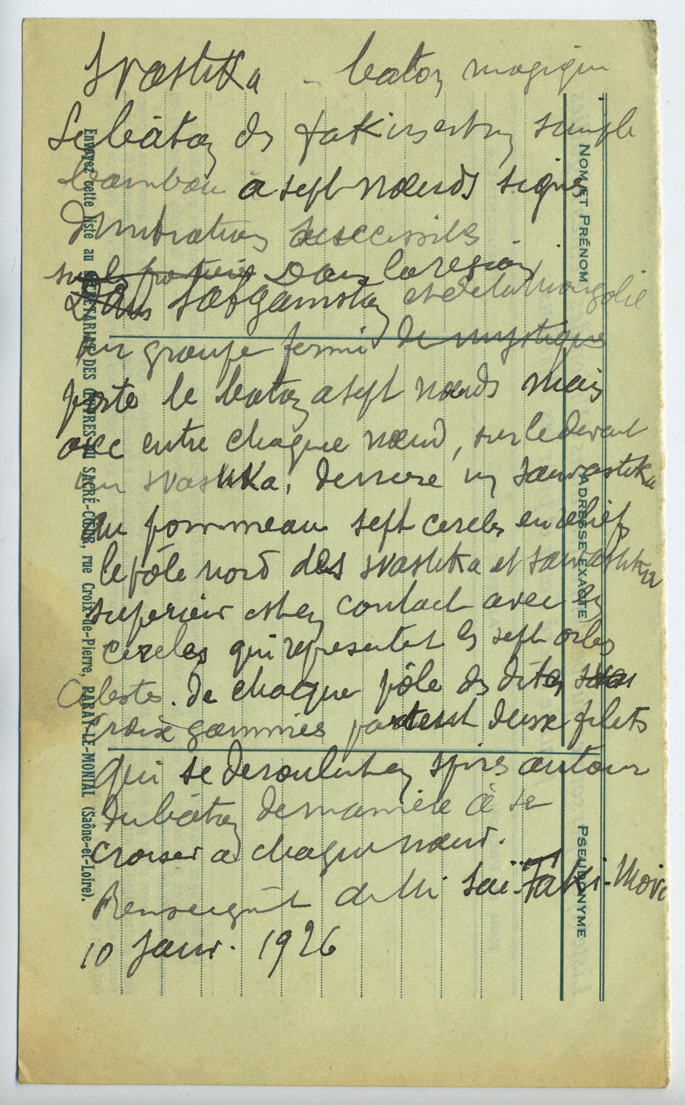 Svastika - baton magique
Le bâton des fakirs est un simple
bambou à sept nœuds signes
d'initiations successives
Dans la région
Dans l'Afganistan et de la Mongolie
un groupe fermé de mystiques
porte le baton a sept nœuds mais
avec entre chaque nœud, sur le devant
un svastika, derriere un sauvastika
au pommeau sept cercles en relief
le pôle nord des svastika et sauvastika
superieur est en contact avec
cercles qui representent les sept orbes
Celestes. de chaque pôle des dites
croix gammées partent deux filets
qui se deroulent en spires autour
du bâton de maniere à se
croiser a chaque nœud.
Renseignt de Mr Saï-Taki-Movi
10 Janv. 1926
NOM ET PRÉNOM
ADRESSE EXACTE
PSEUDONYME
Envoyez cette liste au SECRÉTARIAT DES ŒUVRES DU SACRÉ-CŒUR, rue Croix-de-Pierre, PARAY-LE-MONIAL (Saône-et-Loire).